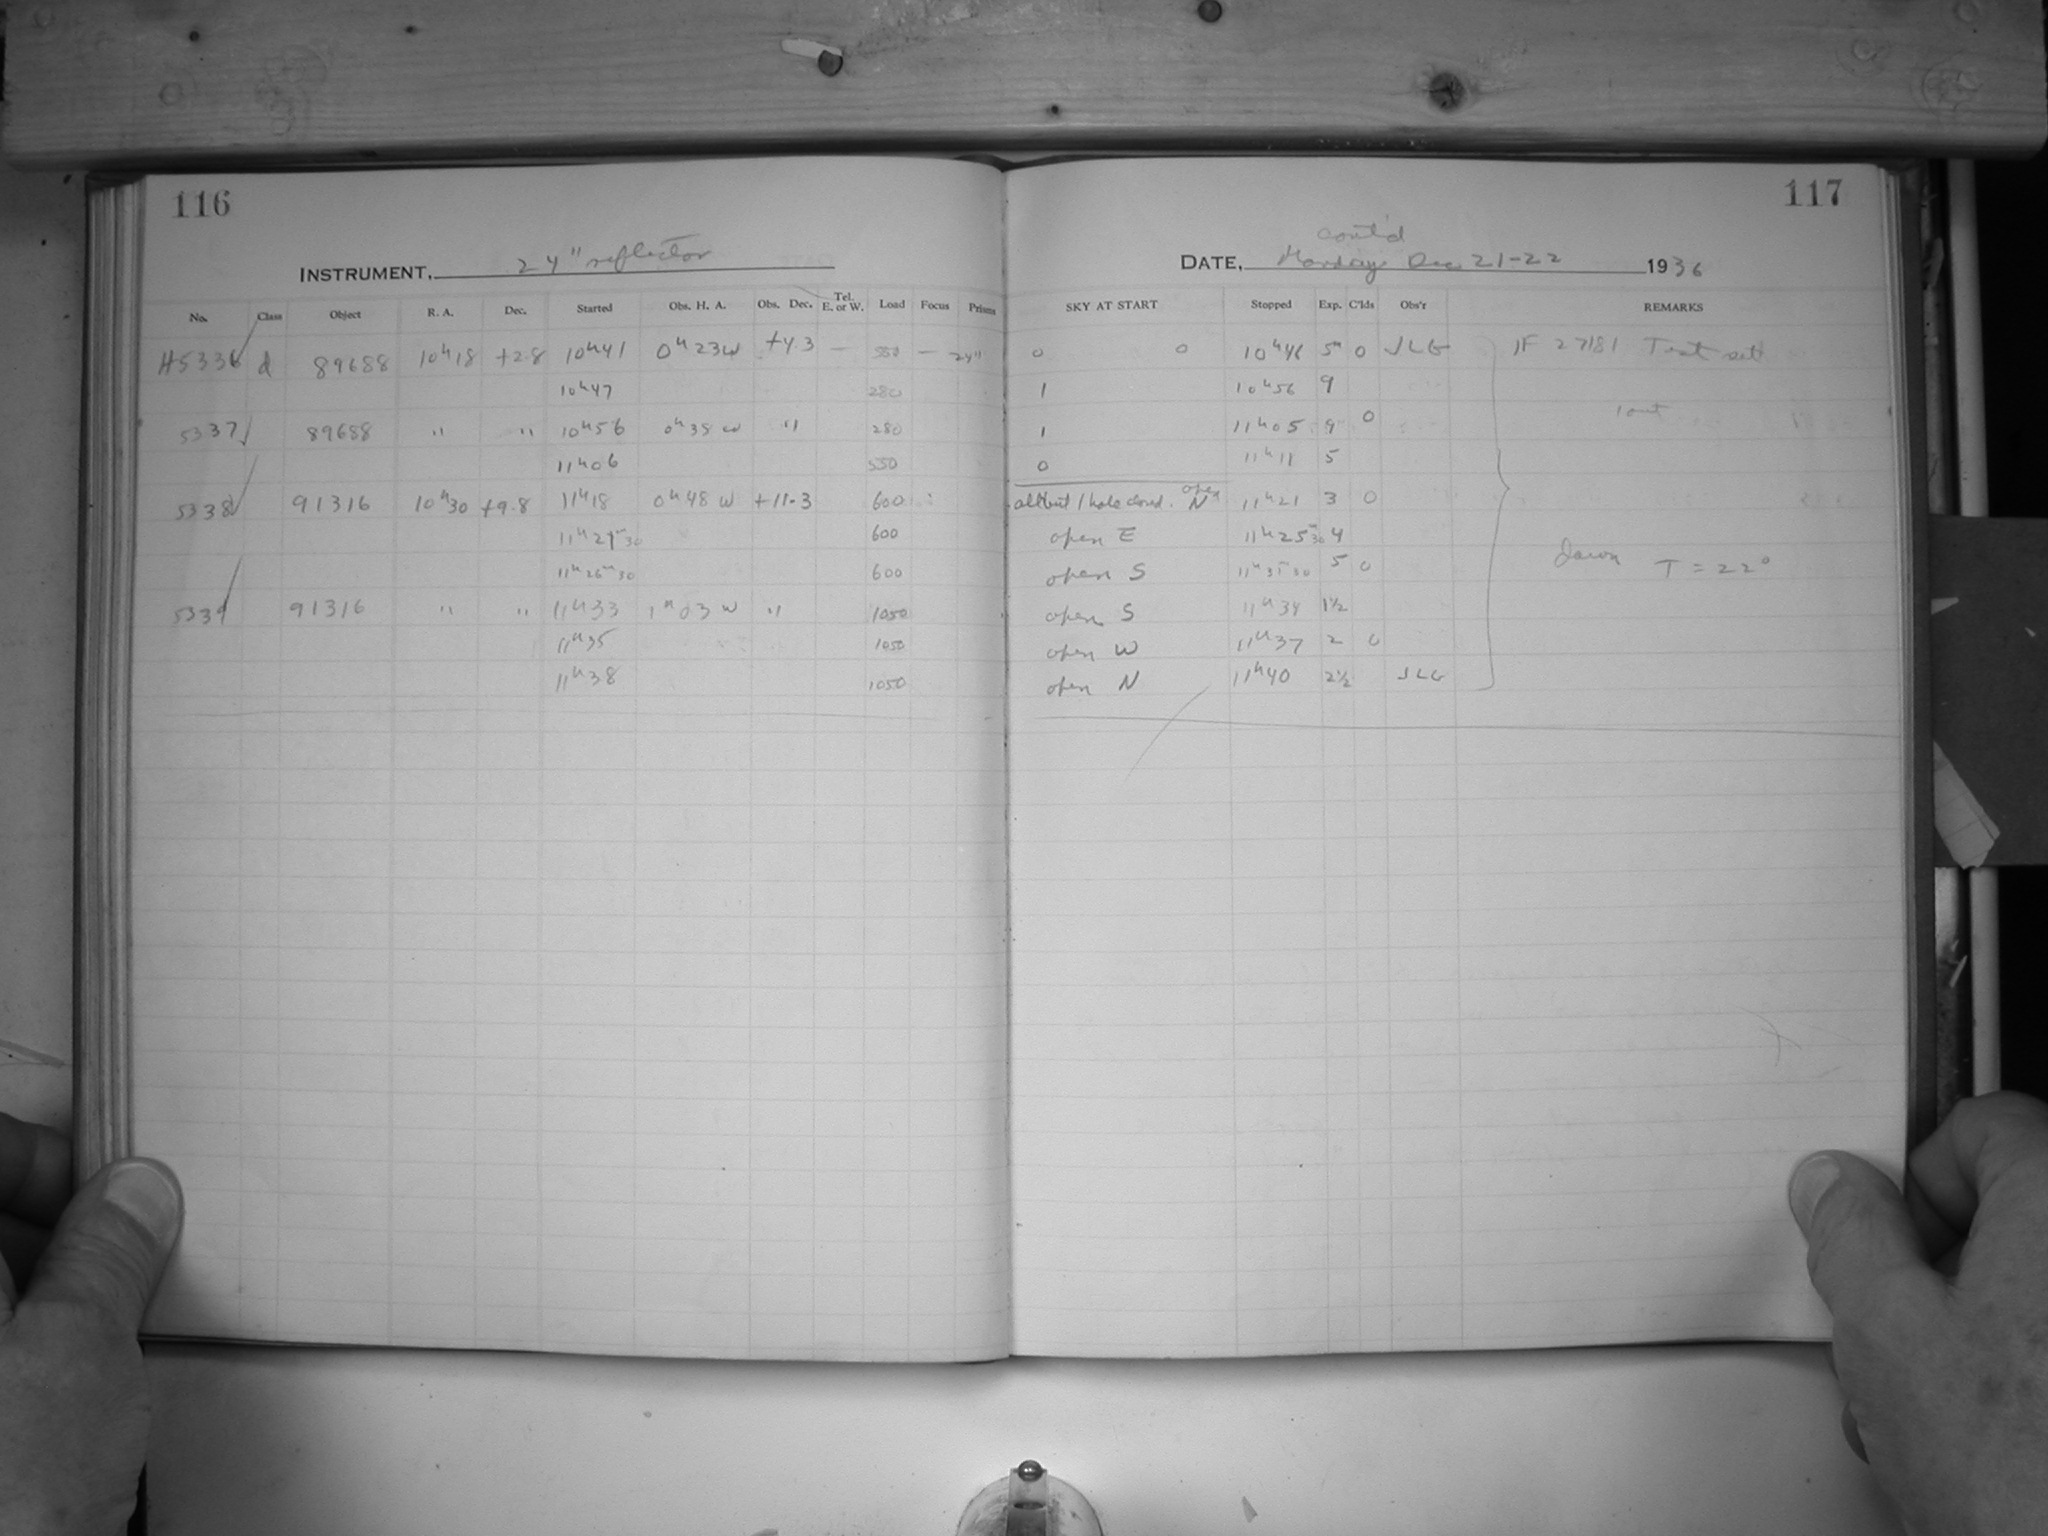 116
INSTRUMENT, 24" reflector
No. Class Object R. A. Dec. Started Obs. H. A. Obs. Dec. Tel. E. or W. Load Focus Prisms
H5336 d 89688 10h18 +2.8 10h41 0h23W +4.3 — 550 — 24"
10h47 280
5337 89688 " " 10h56 0h38 W " 280
11h06 550
5338 91316 10h30 +9.8 11h18 0h48 W +11.3 600
11h21m30 600
11h26m30 600
5339 91316 " " 11h33 1h03 W " 1050
11h35 1050
11h38 1050
117
cont'd
DATE, Monday Dec 21-22 1936
SKY AT START Stopped Exp. C'lds Obs'r REMARKS
0 0 10h46 5m 0 JLG IF 27181 Test
1 10h56 9
1 11h05 9 0 1 out
0 11h11 5
all but 1 hole closed. open N 11h21 3 0
open E 11h25m30 4
open S 11h31m30 5 0 dawn T = 22°
open S 11h34 1½
open W 11h37 2 0
open N 11h40 2½ JLG